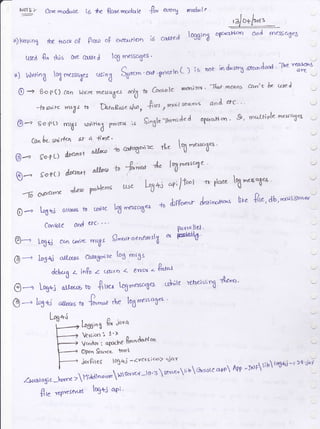 NOTE:- Core module is the Base module for every module.
13/04/2015
*) keeping the track of flow of execution is called logging operation and messages
used for this are called log messages.
*) Writing log messages using System.out.println( ) is not industry standard. The reasons are
① → S.o.p( ) can write messages only to Console monitor. That means can't be used
to write msgs to DataBase s/w, files, mail servers and etc...
② → S.o.p( ) msgs writing process is Single Threaded operation. So, multiple messages
can be written at a time.
③ → S.o.p( ) doesnot allow to categorize the log messages.
④ → S.o.p( ) doesnot allow to format the log message.
To overcome above problems use Log4j api/tool to place log messages.
① → log4j allows to write log messages to different destinations like file, db, mail server
Console and etc...
② → log4j can write msgs Simultaneously or parallel.
③ → log4j allows Categorize log msgs
debug < info < warn < error < fatal
④ → log4j allows to filter log messages while retrieving them.
⑤ → log4j allows to format the log messages.
Log4j
→ Logging for java
→ Version : 1.x
→ Vendor : apache foundation
→ Open Source tool
→ jar files log4j-<version>.jar
file represents log4j api.